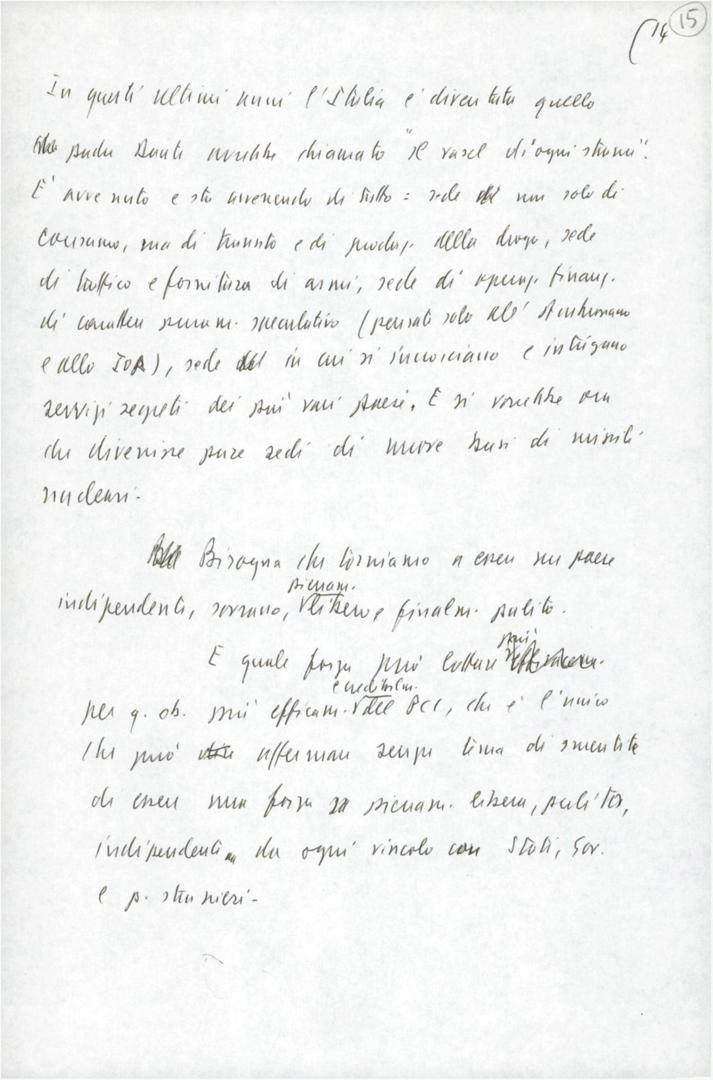 (14 15
In questi ultimi anni l'Italia è diventata quello
che padre Dante avrebbe chiamato "il vasel d'ogni strame".
E' avvenuto e sta avvenendo di tutto: sede non solo di
consumo, ma di transito e di produz. della droga, sede
di traffico e fornitura di armi, sede di operaz. finanz.
di carattere puram. speculativo (pensate solo all'Ambrosiano
e allo IOR), sede in cui si incrociano e intrigano
servizi segreti dei più vari paesi. E si vorrebbe ora
che divenisse pure sede di nuove basi di missili
nucleari.
Bisogna che torniamo a essere un paese
pienam.
indipendente, sovrano, libero e finalm. pulito.
E quale forza può lottare più
e credibilm.
per q. ob. più efficacem. del PCI, che è l'unico
che può affermare senza tema di smentite
di essere una forza pienam. libera, pulita,
indipendente da ogni vincolo con Stati, Gov.
e p. stranieri.